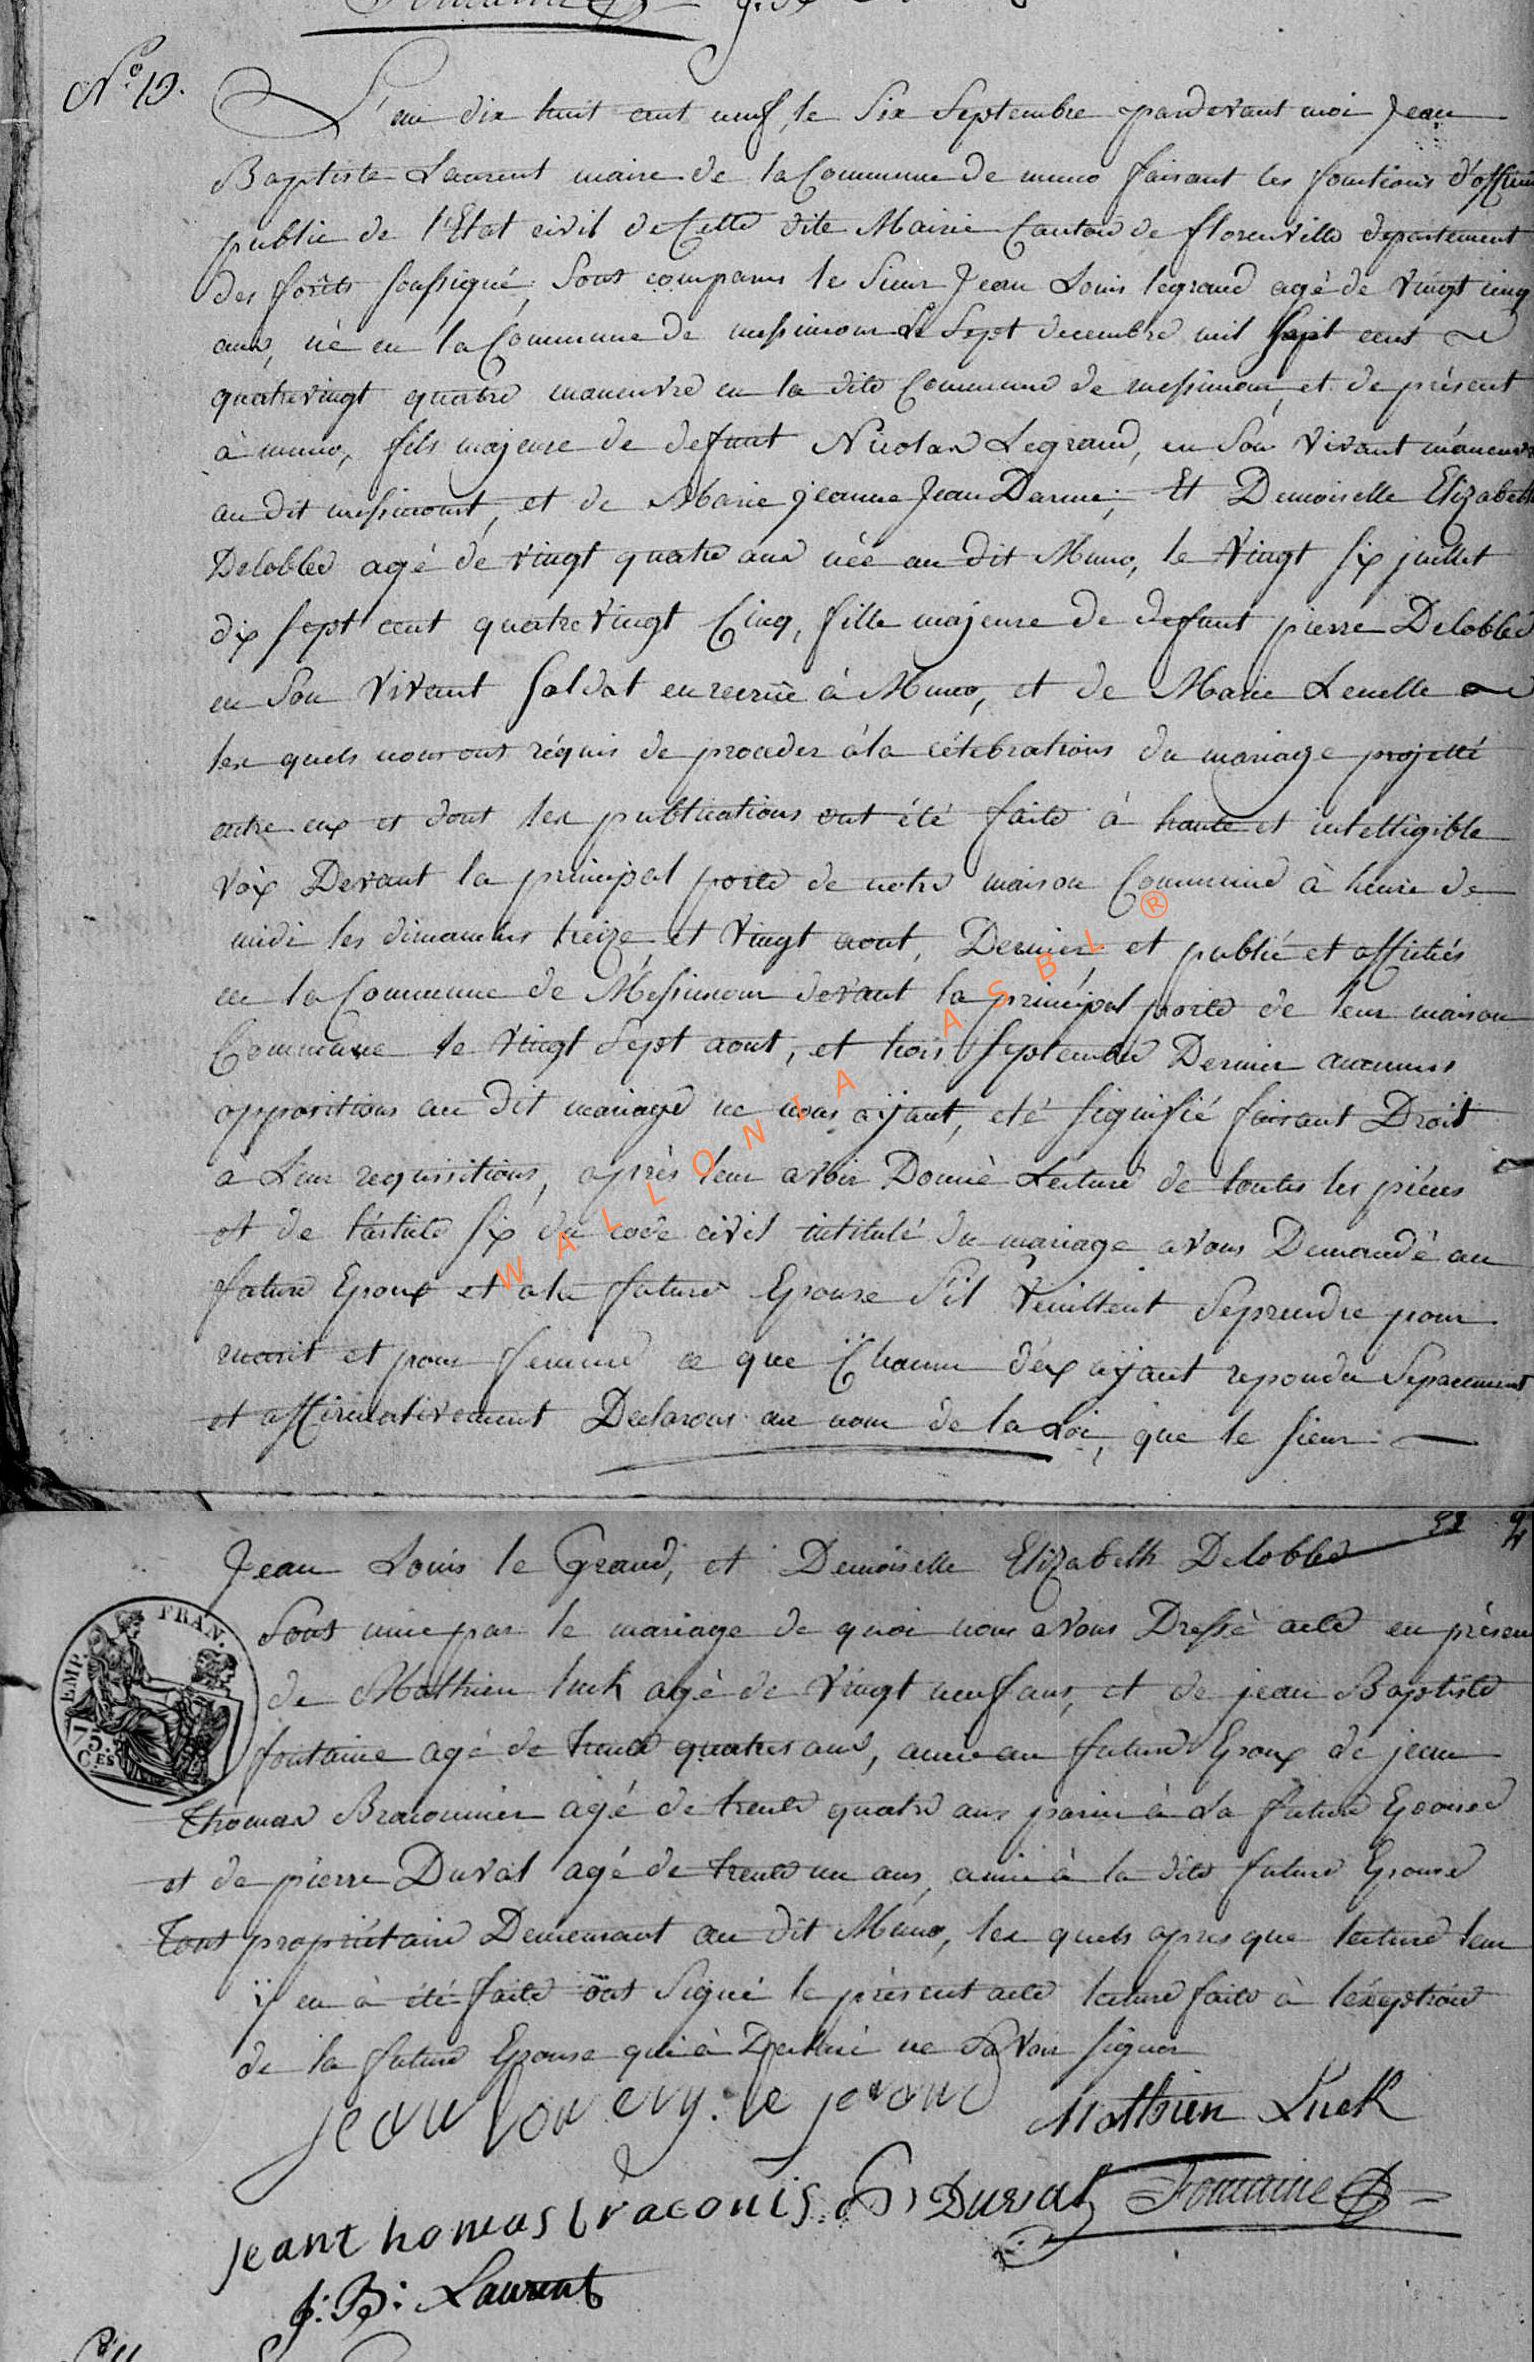 N° 10.
L'an dix huit cent neuf, le Six Septembre pardevant moi Jean
Baptiste Laurent maire de la Commune de muno faisant les fonctions d'officier
public de l'Etat civil de Cette dite Mairie Canton de florenville departement
des forêts soussigné, Sont comparus le Sieur Jean Louis legrand agé de vingt cinq
ans, né en la Commune de messincour le Sept decembre mil Sept cent
quatrevingt quatre manœuvre en la dite Commune de messincour, et de présent
à muno, fils majeure de defunt Nicolas Legrand, en Son vivant manœuvre
au dit messincourt, et de Marie jeanne Jean Darme; Et Demoiselle Elizabeth
Delobbed agé de vingt quatre ans née au dit Muno, le vingt six juillet
dix sept cent quatre vingt Cinq, fille majeure de defunt pierre Delobbed
en Son vivant Soldat en recrüe à Muno, et de Marie Lenelle
les quels nous ont réquis de proceder à la célebrations du mariage projetté
entre eux et dont les publications ont été faite à haute et intelligible
voix Devant la principal porte de notre maison Commune à heure de
midi les dimanches treize et vingt aout, Dernier et publié et affichés
en la Commune de Messincour devant la principal porte de leur maison
Commune le vingt Sept aout, et trois Septembre Dernier aucunes
oppositions au dit mariage ne nous aijant, eté signifié faisant Droit
à Leur requisitions, après leur avoir Donné Lecture de toutes les pièces
et de l'article six du code civil intitulé du mariage avons Demandé au
future Epoux et a la future Epouse S'il veuillent Se prendre pour
marit et pour femme ce que Chacun d'éux aijant repondu Separement
et affirmativement Declarons au nom de la Loi, que le sieur
Jean Louis le Grand, et Demoiselle Elizabeth Delobbed
Sont unie par le mariage de quoi nous avons Dressé acte en présen
de Mathieu luck agé de vingt neuf ans, et de jean Baptiste
fontaine agé de trente quatres ans, amie au future Epoux de jean
Thomas Braconnier agé de trente quatre ans parin à La future Epouse
et de pierre Duval agé de trente un ans, amie à la dite future Epouse
Tous propriétaire Demeurant au dit Muno, les quels apres que lecture leur
ÿ en à été faite ont Signé le présent acte lecture faite à léxeption
de la future Epouse qui à Declaré ne Savoir signer
Mathieu Luck
jean thomas braconis P, Duval Fontaine
J: B: Laurent
EMP. FRAN.
75. CES
WALLONIA ASBL ®